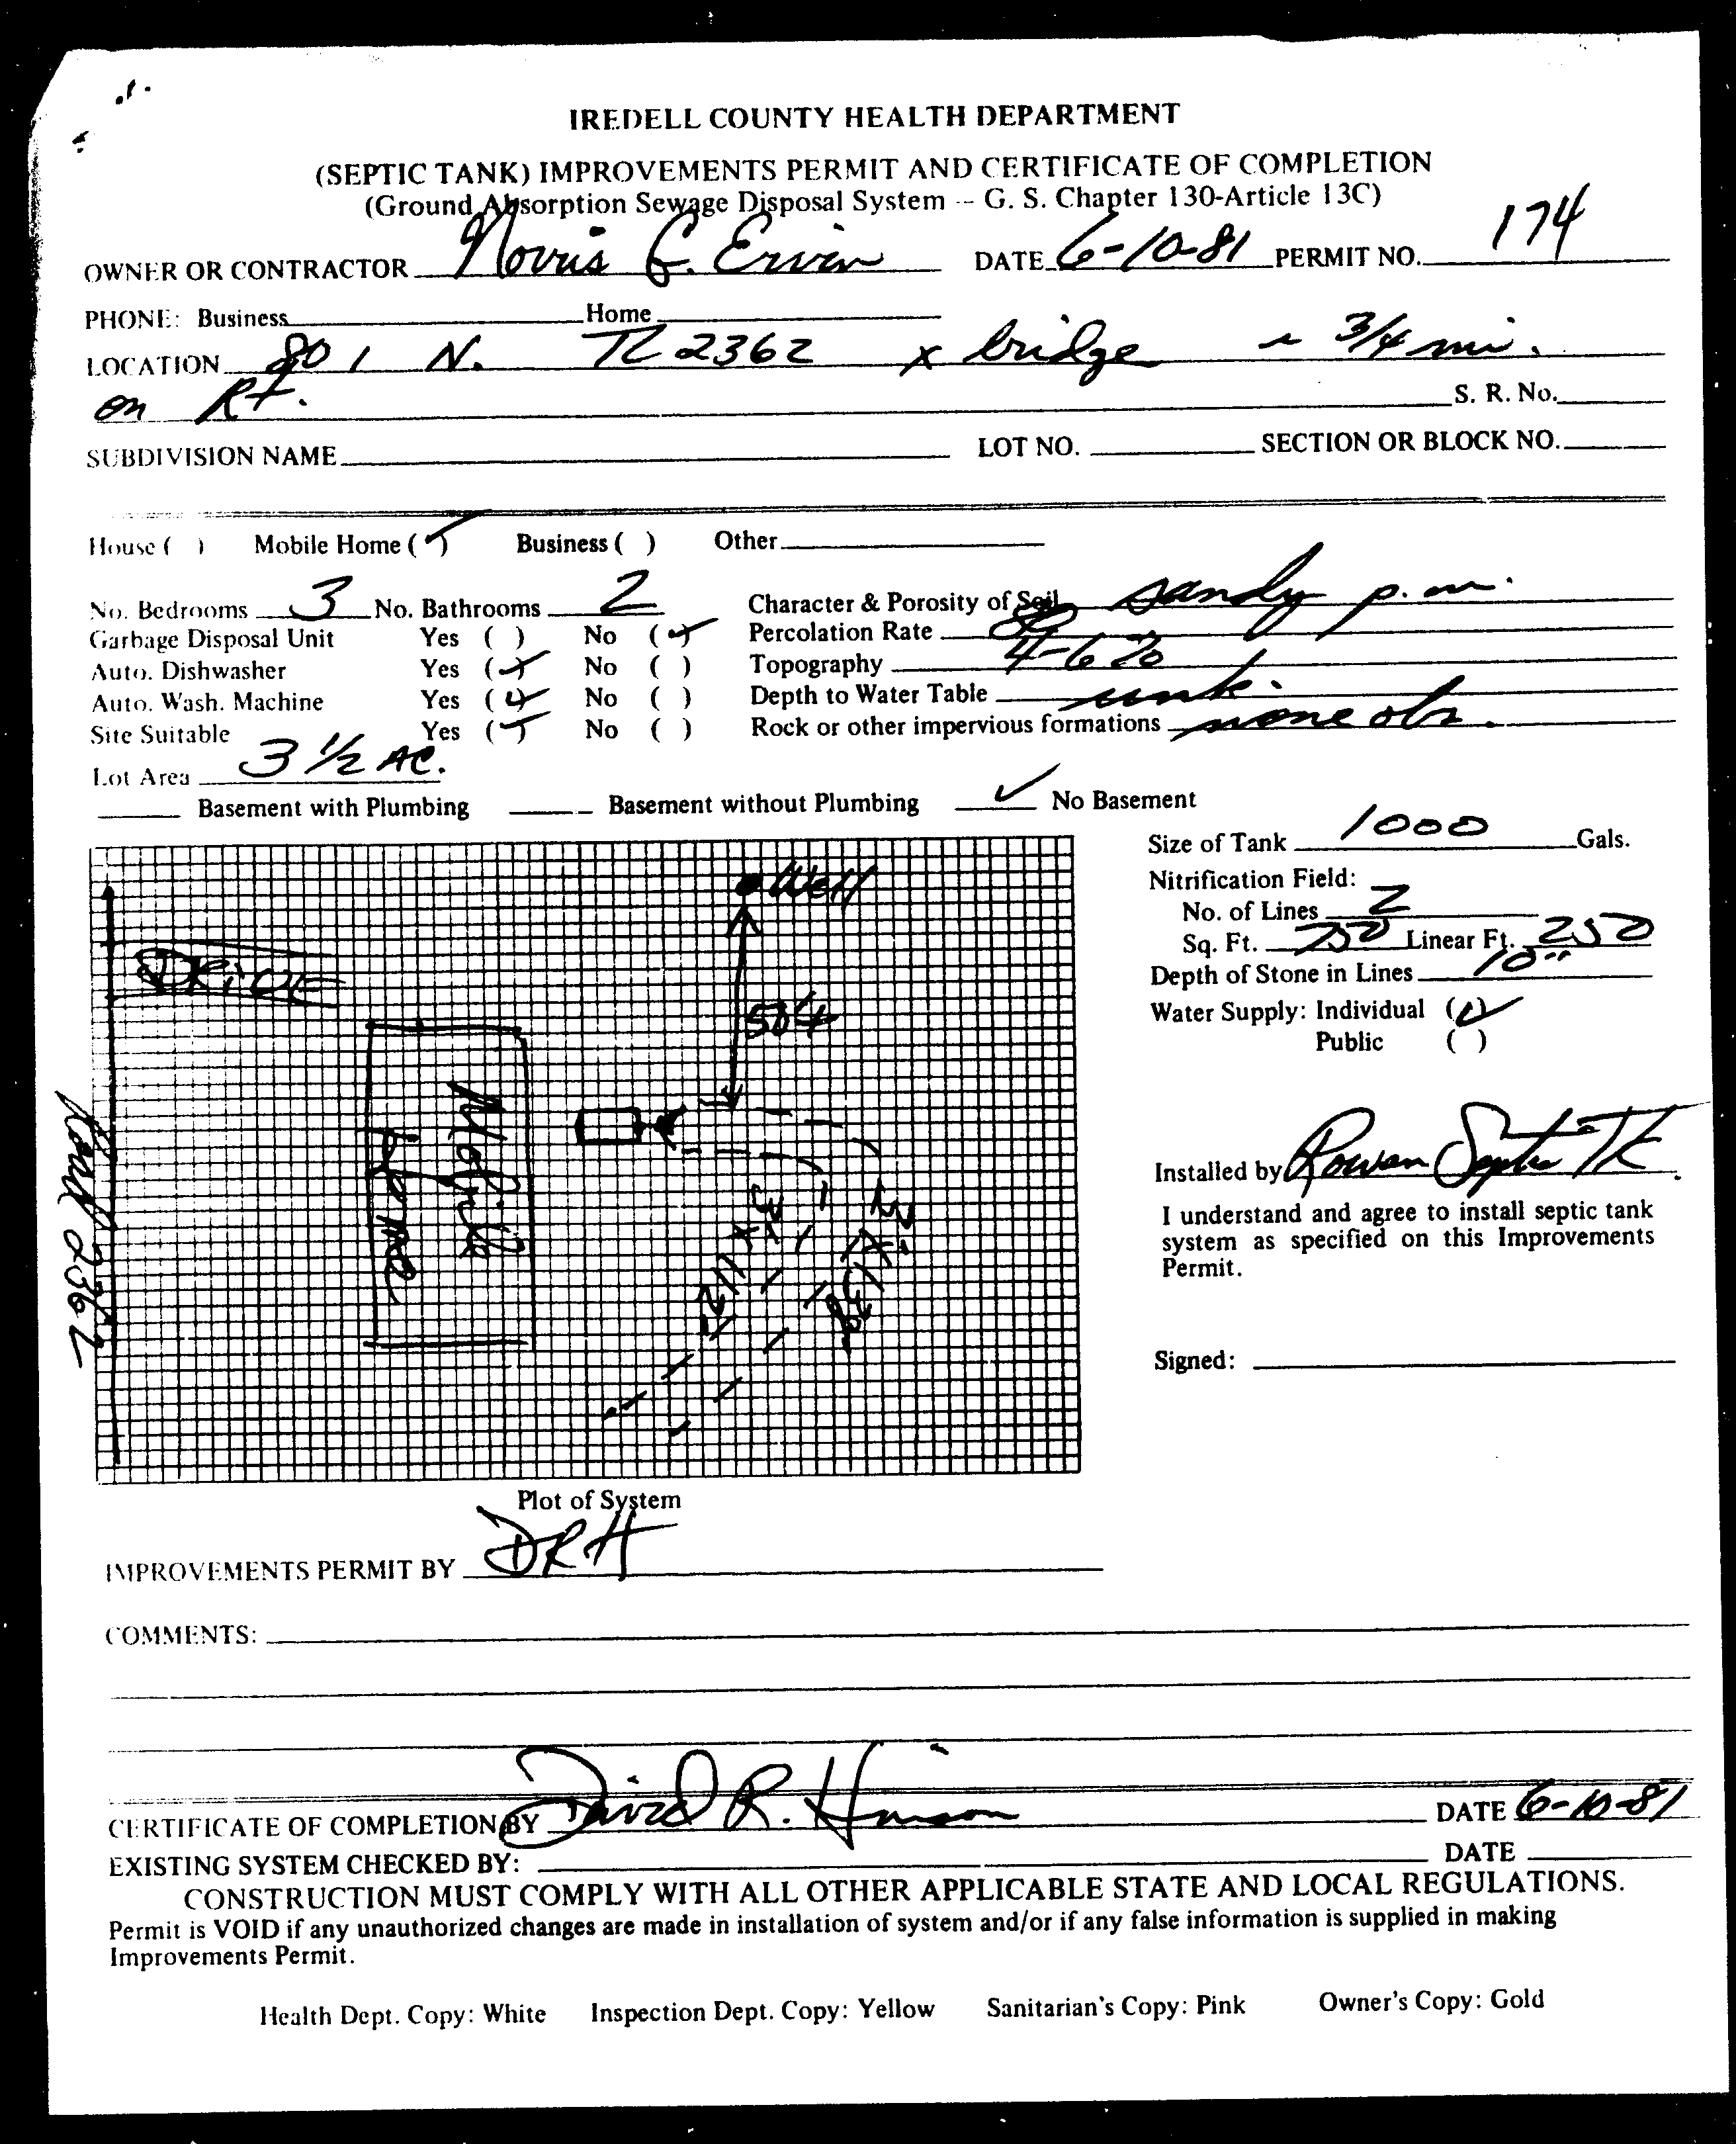 IREDELL COUNTY HEALTH DEPARTMENT
(SEPTIC TANK) IMPROVEMENTS PERMIT AND CERTIFICATE OF COMPLETION
(Ground Absorption Sewage Disposal System -- G. S. Chapter 130-Article 13C)
OWNER OR CONTRACTOR Norris G. Ervin DATE 6-10-81 PERMIT NO. 174
PHONE: Business Home
LOCATION 801 N. TL 2362 x bridge 3/4 mi.
on Rt. S. R. No.
SUBDIVISION NAME LOT NO. SECTION OR BLOCK NO.
House ( ) Mobile Home (✓) Business ( ) Other
No. Bedrooms 3 No. Bathrooms 2 Character & Porosity of Soil sandy p.m.
Garbage Disposal Unit Yes ( ) No (✓) Percolation Rate
Auto. Dishwasher Yes (✓) No ( ) Topography 4-6%
Auto. Wash. Machine Yes (✓) No ( ) Depth to Water Table unk.
Site Suitable Yes (✓) No ( ) Rock or other impervious formations none obs.
Lot Area 3 1/2 AC.
Basement with Plumbing Basement without Plumbing ✓ No Basement
Size of Tank 1000 Gals.
Nitrification Field:
No. of Lines 2
Sq. Ft. 750 Linear Ft. 250
Depth of Stone in Lines 10"
Water Supply: Individual (✓)
Public ( )
Installed by Rowan Septic TK
I understand and agree to install septic tank
system as specified on this Improvements
Permit.
Signed:
Well
Drive
Mobile
Home
Road 2362
3' x 112'
3' x 138'
Plot of System
IMPROVEMENTS PERMIT BY DRH
COMMENTS:
CERTIFICATE OF COMPLETION BY David R. Hinson DATE 6-10-81
EXISTING SYSTEM CHECKED BY: DATE
CONSTRUCTION MUST COMPLY WITH ALL OTHER APPLICABLE STATE AND LOCAL REGULATIONS.
Permit is VOID if any unauthorized changes are made in installation of system and/or if any false information is supplied in making
Improvements Permit.
Health Dept. Copy: White Inspection Dept. Copy: Yellow Sanitarian's Copy: Pink Owner's Copy: Gold